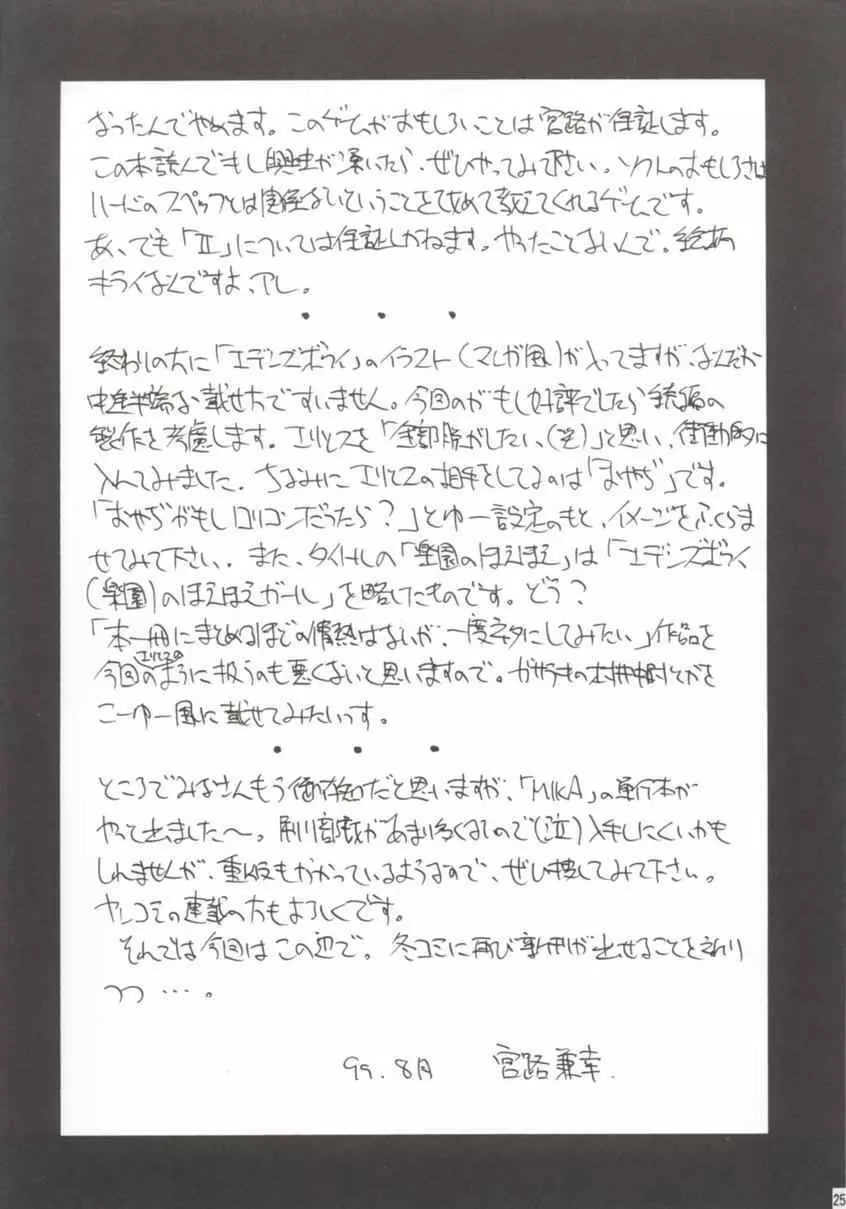 なったんでやめます。このゲームがおもしろいことは宮路が保証します。
この本読んでもし興味が湧いたら、ぜひやってみて下さい。ソフトのおもしろさは
ハードのスペックとは関係ないということを改めて教えてくれるゲームです。
あ、でも「Ⅱ」については保証しかねます。やったことないんで。絵柄
キライなんですよ、アレ。
・ ・ ・
終わりの方に「エデンズボゥイ」のイラスト(マンガ風)が入ってますが、なんだか
中途半端な載せ方ですいません。今回のがもし好評でしたら続編の
製作を考慮します。エリシスを「全部脱がしたい、(笑)」と思い、衝動的に
入れてみました。ちなみにエリシスの相手をしてるのは「おやぢ」です。
「おやぢがもしロリコンだったら?」とゆー設定のもと、イメージをふくらま
せてみて下さい。また、タイトルの「楽園のほえほえ」は「エデンズボゥイ
(楽園)のほえほえガール」を略したものです。どう?
「本一冊にまとめるほどの情熱はないが、一度ネタにしてみたい」作品を
今回のエリシスのように扱うのも悪くないと思いますので。ガザラキの とかを
こーゆー風に載せてみたいっす。
・ ・ ・
ところでみなさんもう御存知だと思いますが、「MIKA」の単行本が
やっと出ました〜。刷り部数があまり多くないので(泣)入手しにくいかも
しれませんが、重版もかかっているようなので、ぜひ捜してみて下さい。
ヤンコミの連載の方もよろしくです。
それでは今回はこの辺で。冬コミに再び新刊が出せることを祈り
つつ…。
99.8月 宮路兼幸.
25